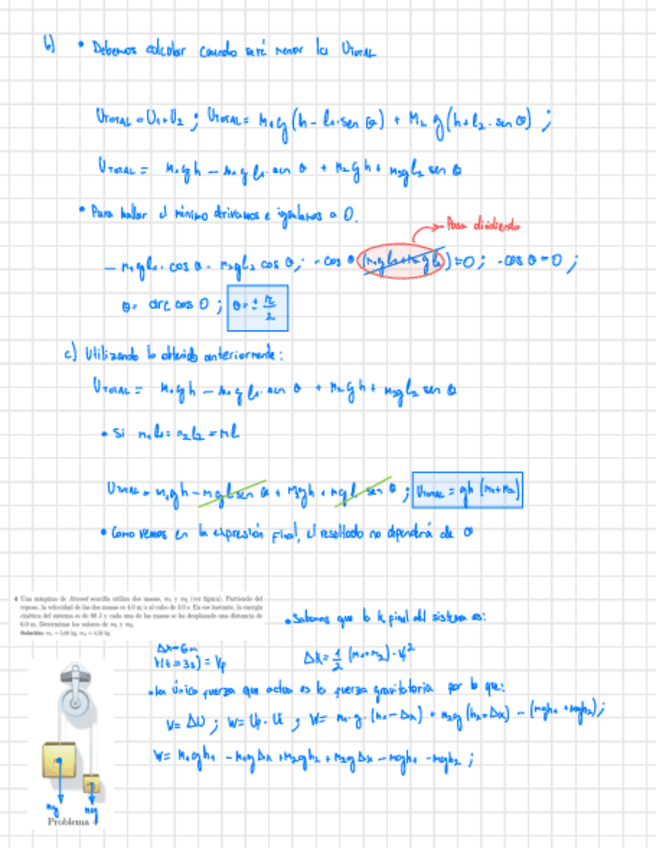 b) • Debemos calcular cuando será menor la UTOTAL
UTOTAL = U1+U2 ; UTOTAL = M1g (h - l1·sen θ) + M2 g (h + l2·sen θ) ;
UTOTAL = M1gh - m1g l1·sen θ + M2gh + m2gl2 sen θ
• Para hallar el mínimo derivamos e igualamos a 0.
Pasa dividiendo
- m1gl1·cos θ - m2gl2 cos θ; -cos θ (m1gl1+m2gl2)=0 ; -cos θ=0 ;
θ= arc cos 0 ; θ=± π/2
c) Utilizando lo obtenido anteriormente:
UTOTAL = M1gh - m1g l1·sen θ + M2gh + m2gl2 sen θ
• Si m1l1 = m2l2 = ml
UTOTAL = m1gh - mgl sen θ + m2gh + mgl sen θ ; UTOTAL = gh (m1+m2)
• Como vemos en la expresión final, el resultado no dependerá de θ
4 Una máquina de Atwood sencilla utiliza dos masas, m1 y m2 (ver figura). Partiendo del
reposo, la velocidad de las dos masas es 4.0 m/s al cabo de 3.0 s. En ese instante, la energía
cinética del sistema es de 80 J y cada una de las masas se ha desplazado una distancia de
6.0 m. Determinar los valores de m1 y m2.
Solución:
• Sabemos que la k final del sistema es:
Δx=6m
V(t=3s) = Vf
Δk= 1/2 (m1+m2)·Vf²
• La única fuerza que actua es la fuerza gravitatoria por lo que:
W= ΔU ; W= Uf - Ui ; W= m1·g·(h1-Δx) + m2g (h2+Δx) - (m1gh1 + m2gh2) ;
W= m1gh1 - m1gΔx + m2gh2 + m2gΔx - m1gh1 - m2gh2 ;
Problema